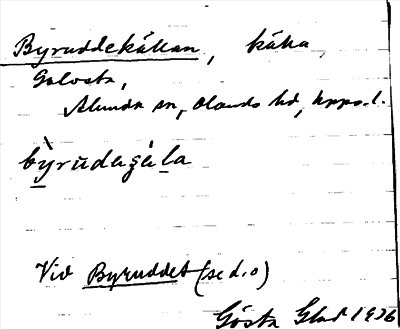 Byruddekällan, källa
Golvsta,
Alunda sn, Olands hd, Upps. l.
by̲rudaʂäl̲a
Vid Byruddet (se d. o)
Gösta Glad 1926